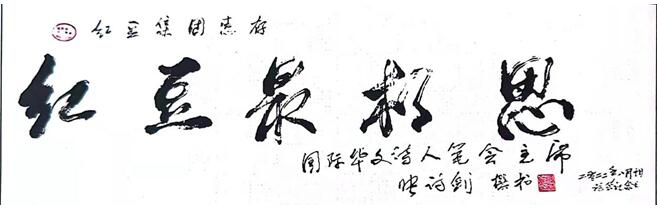 红豆集团惠存
红豆最相思
国际华文诗人笔会主席
张诗剑 撰
二〇二二年八月